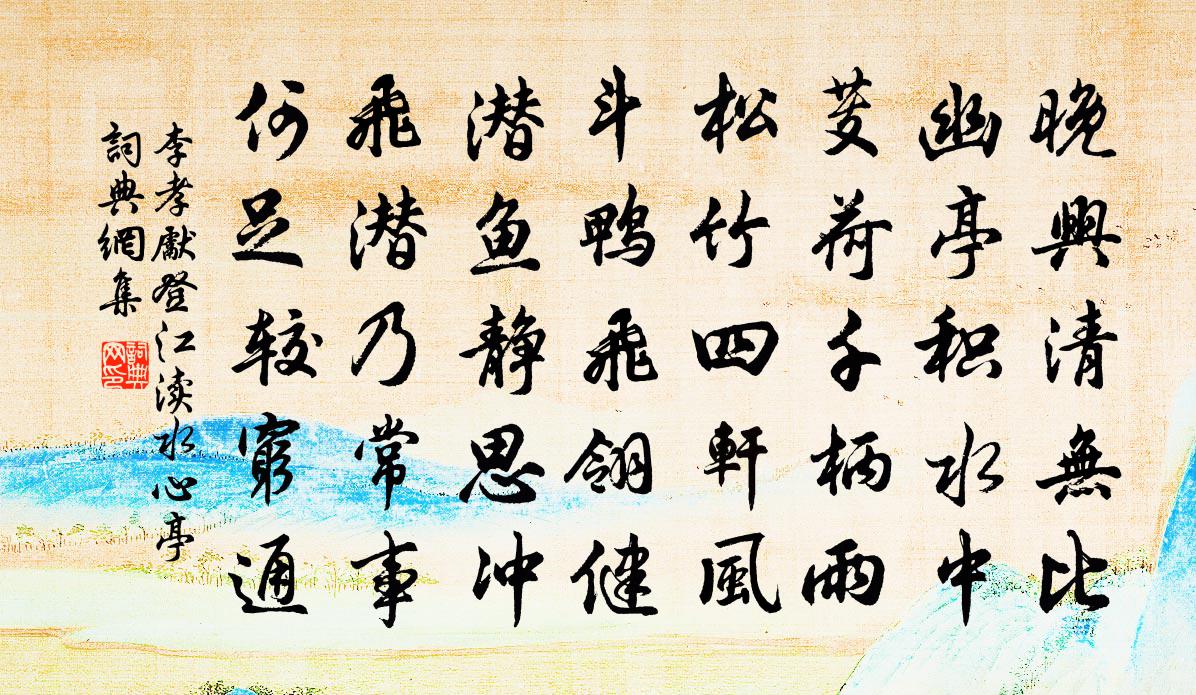 晚興清無比
幽亭积水中
芰荷千柄雨
松竹四軒風
斗鴨飛翎健
潜鱼静思冲
飛潜乃常事
何足较窮通
李孝獻登江渎水心亭
詞典網集
詞典網印